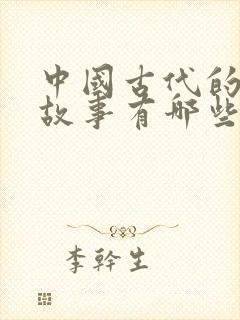 中國古代的
故事有哪些
李幹生